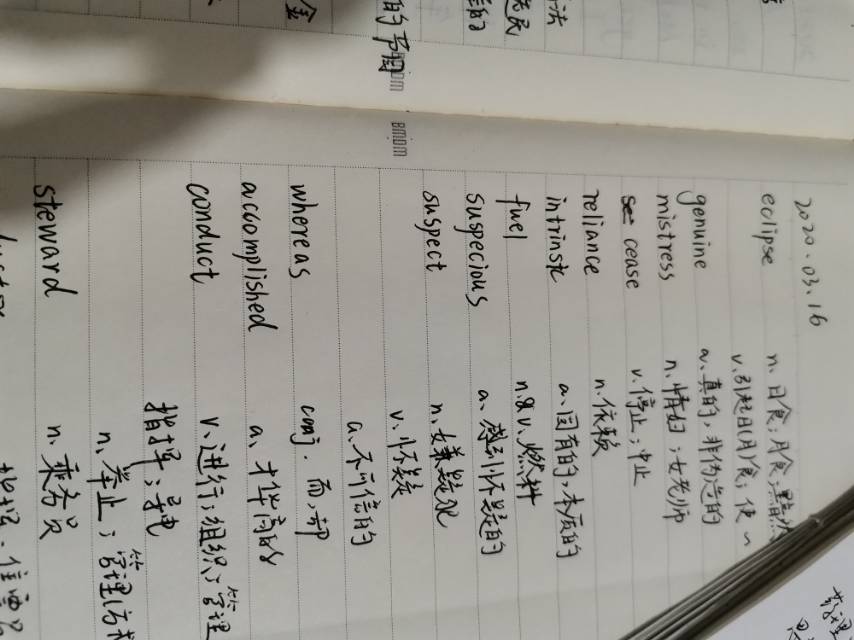 2020.03.16
eclipse n. 日食;月食;黯然
v. 引起日(月)食;使~
genuine a. 真的,非伪造的
mistress n. 情妇;女老师
cease v. 停止;中止
reliance n. 依赖
intrinstc a. 固有的,本质的
fuel n.&v. 燃料
suspecious a. 感到怀疑的
suspect n. 嫌疑犯
v. 怀疑
a. 不可信的
whereas conj. 而,却
accomplished a. 才华高的
conduct v. 进行;组织;管理
指挥;导电
n. 举止;管理(方
steward n. 乘务员
bmjom
bmjom
的声闻
金